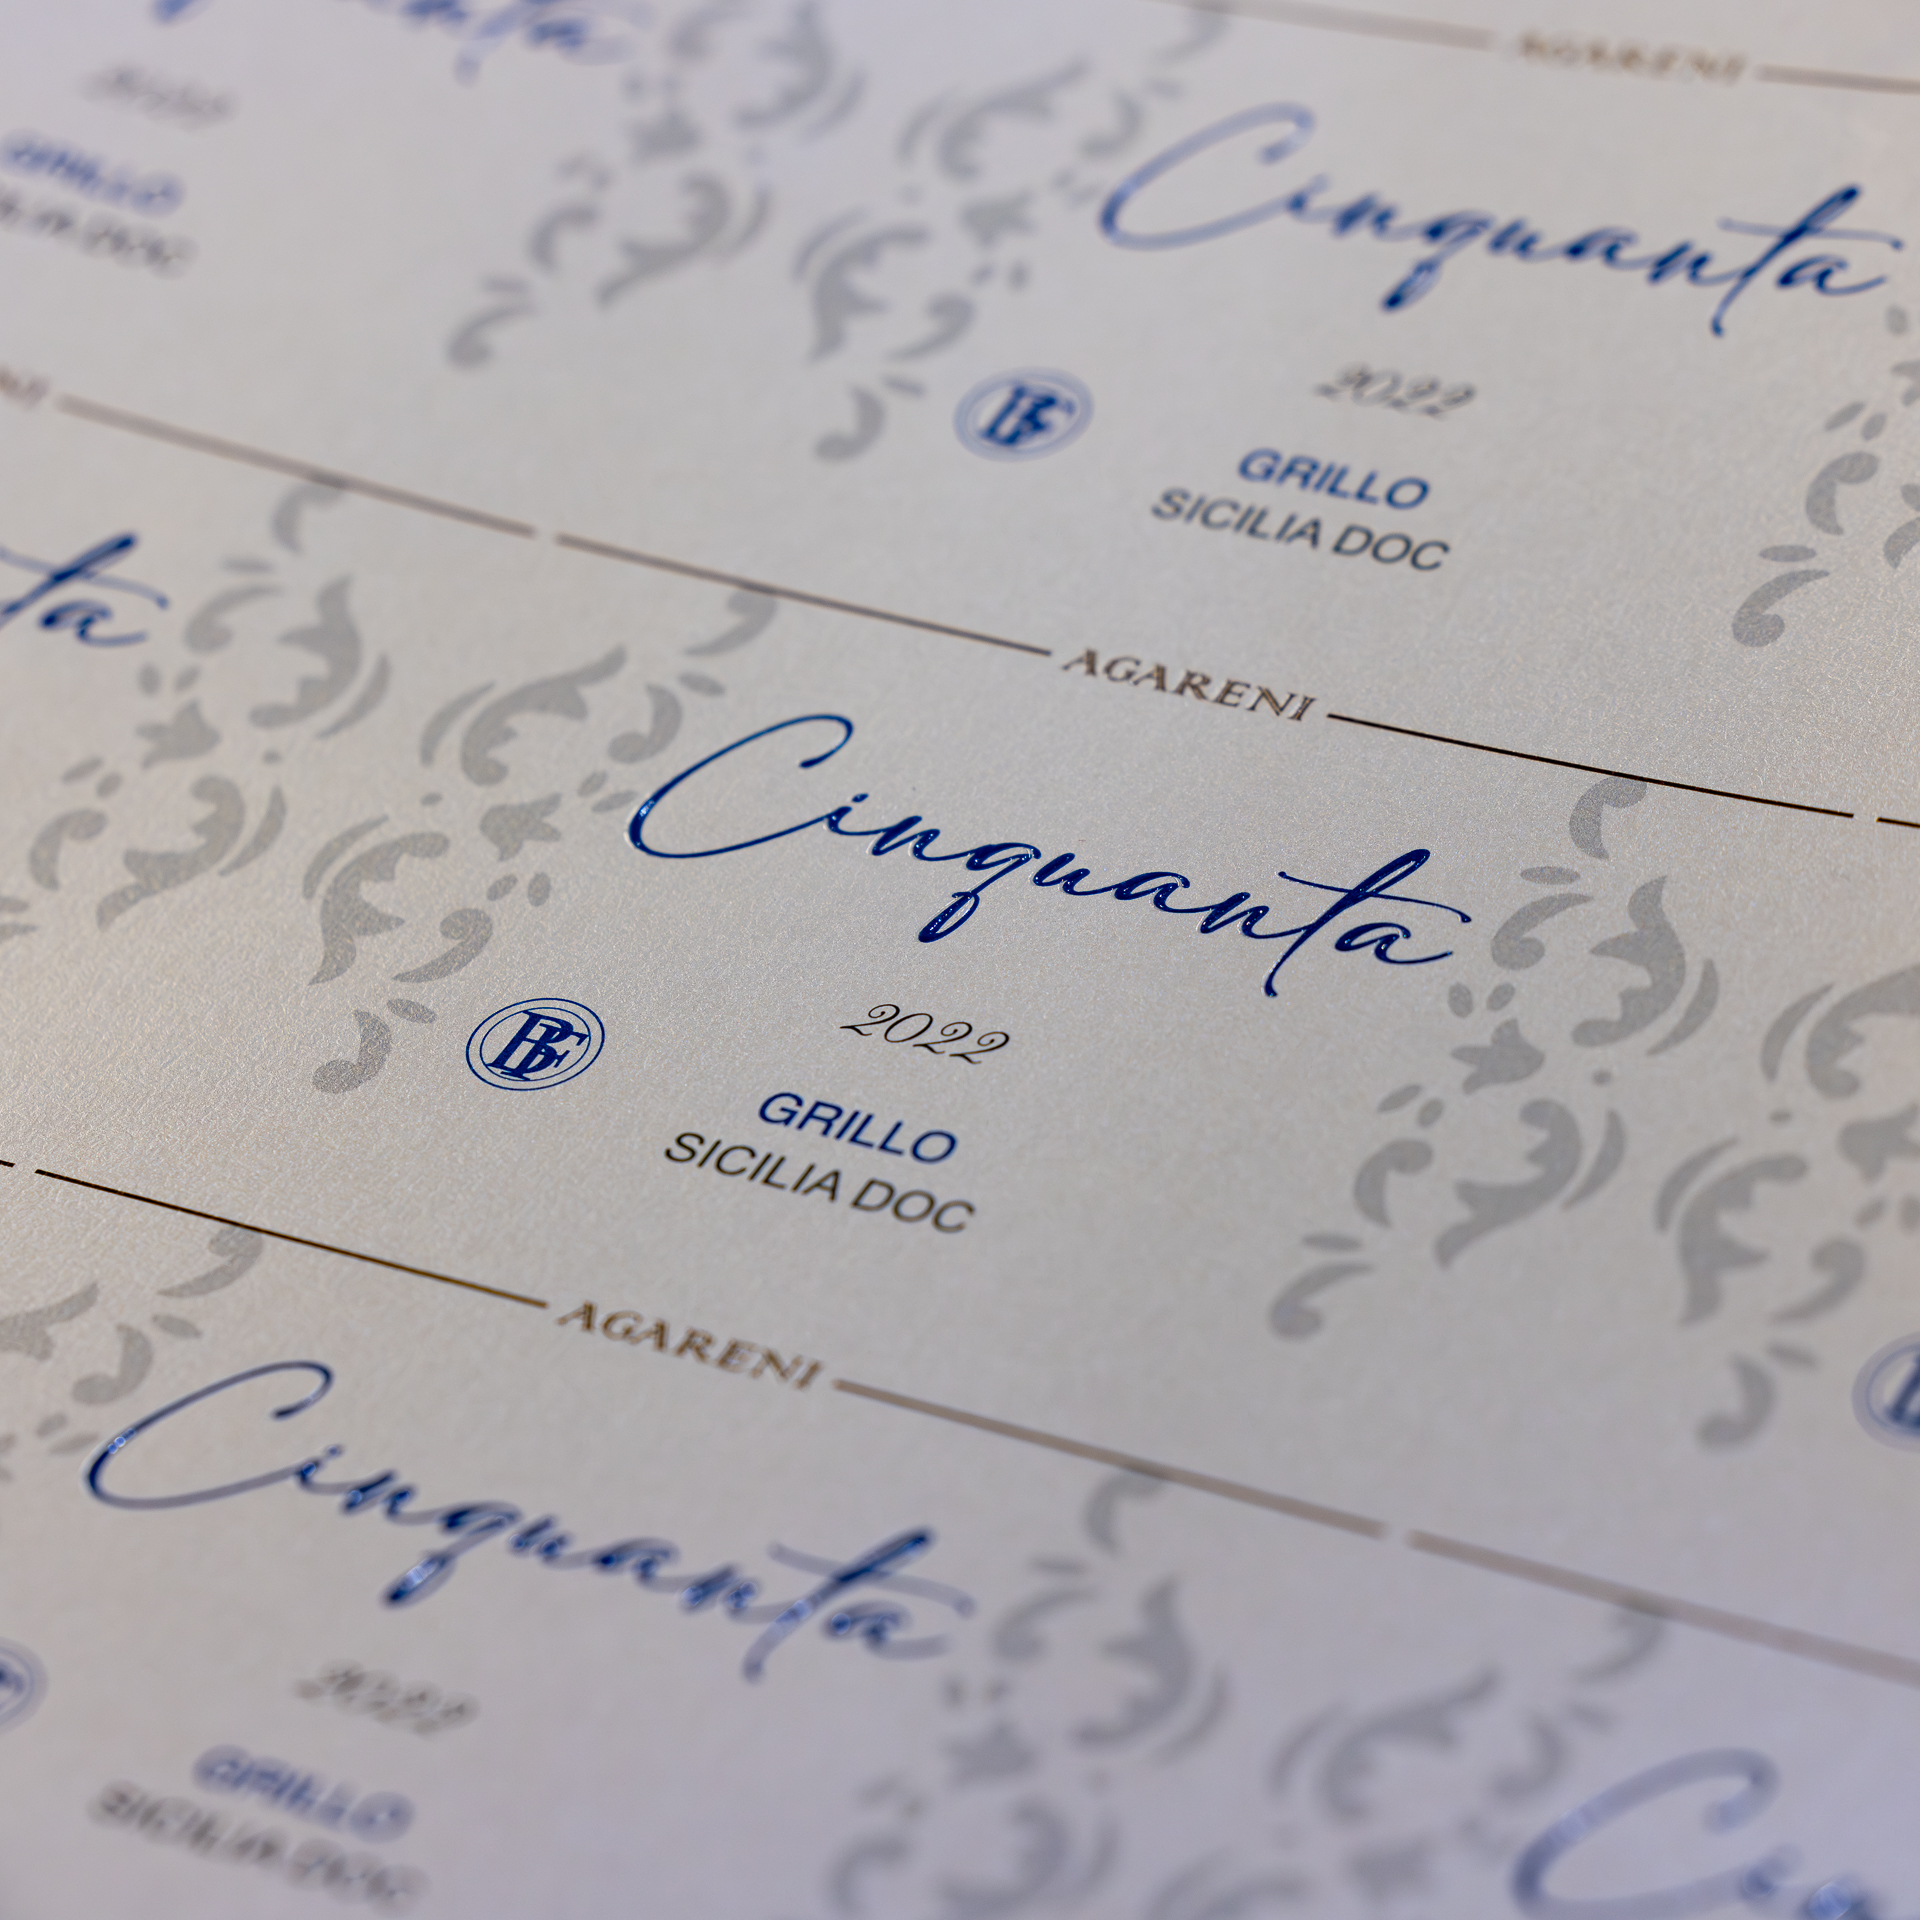 AGARENI
Cinquanta
2022
GRILLO
SICILIA DOC
BF
AGARENI
ta
Cinquanta
2022
BF
GRILLO
SICILIA DOC
AGARENI
Cinquanta
2022
GRILLO
SICILIA DOC